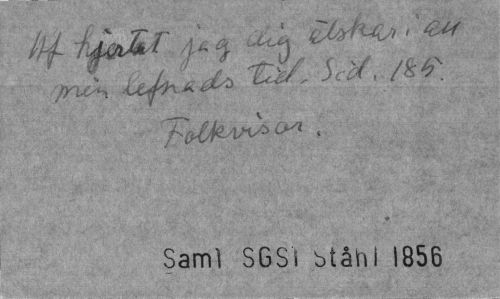 Af hjertat jag dig älskar i all
min lefnads tid. Sid. 185.
Folkvisor.
Saml SGS1 Ståhl 1856